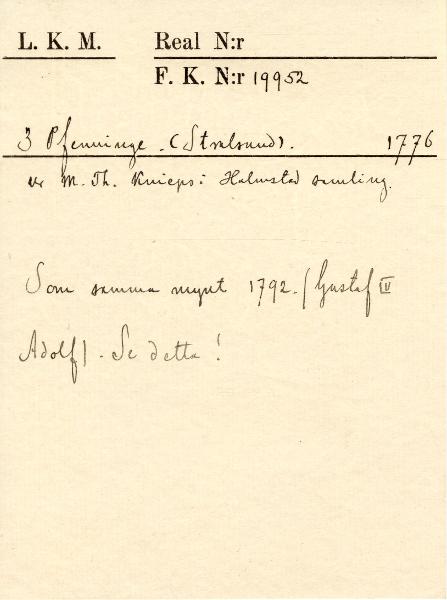 L. K. M. Real N:r
F. K. N:r 19952
3 Pfenninge. (Stralsund). 1776
ur M. Th. Knieps: Halmstad samling.
Som samma mynt 1792. (Gustaf IV
Adolf). Se detta!